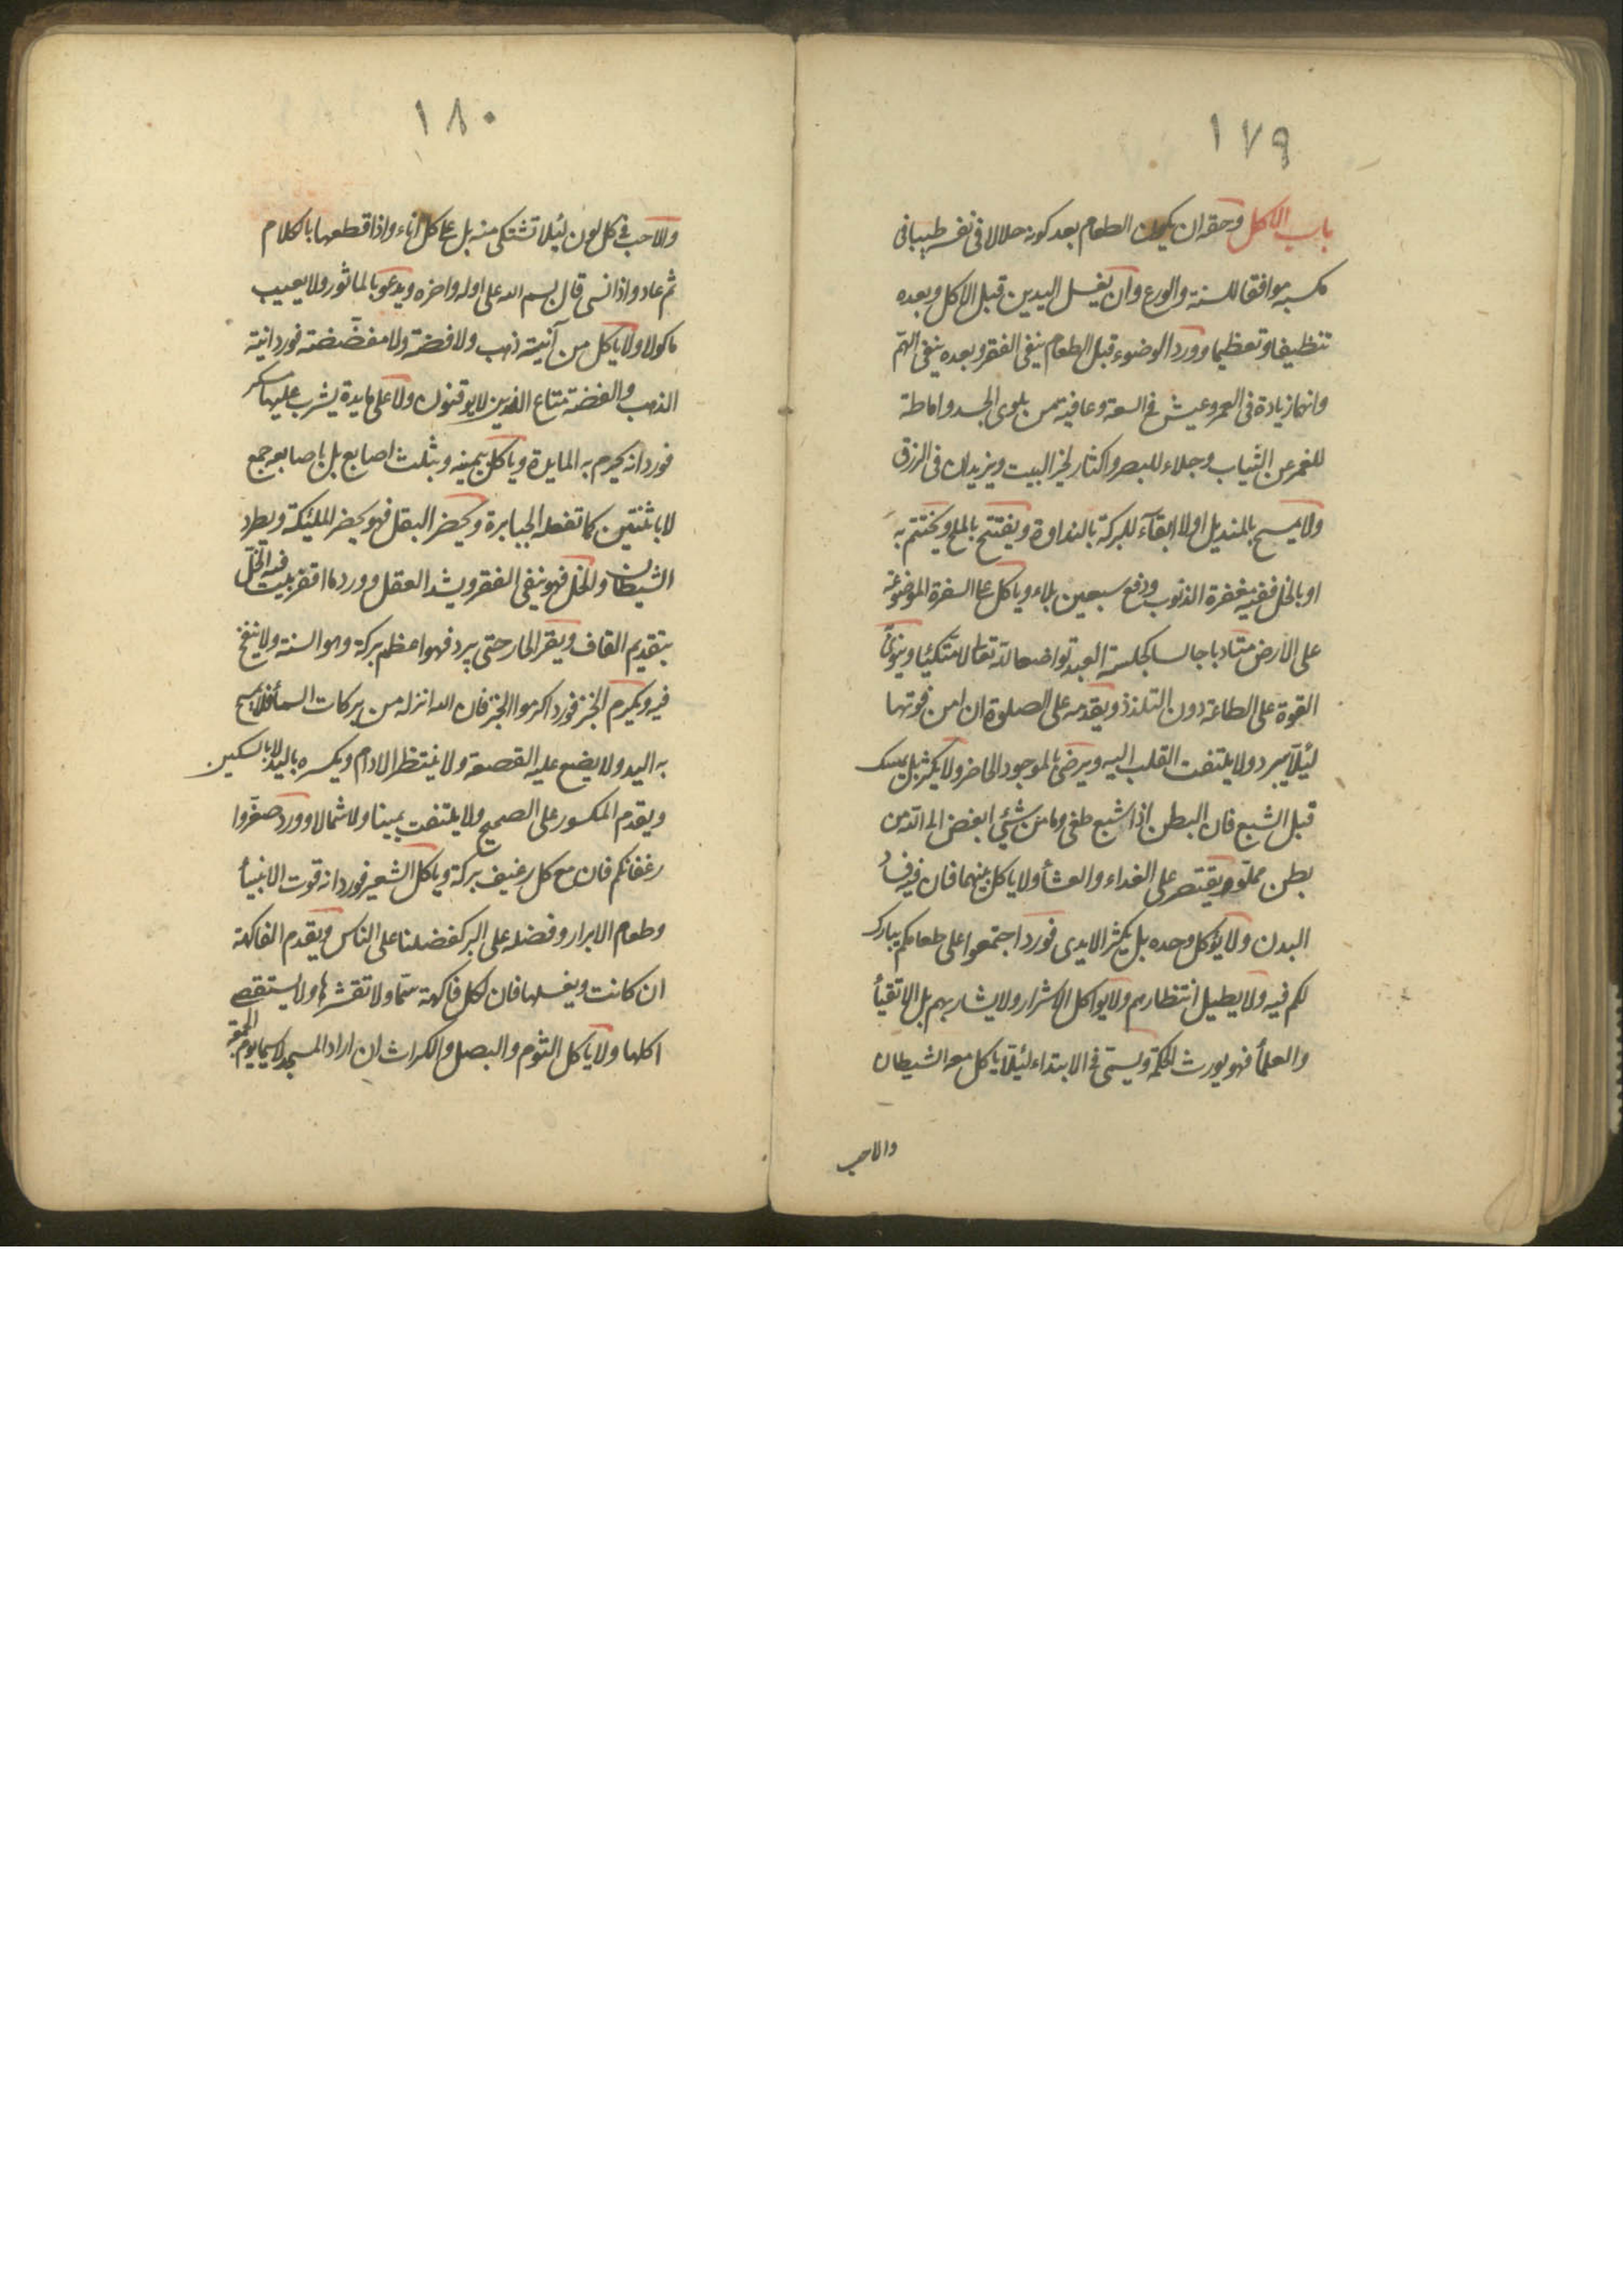 ١٧٩
باب الاكل وحقه ان يكون الطعام بعد كونه حلالا فى نفسه طيبا فى
مكسبه موافقا للسنة والورع وان يغسل اليدين قبل الاكل وبعده
تنظيفا وتعظيما وورد الوضوء قبل الطعام ينفى الفقر وبعده ينفى الهم
وانهما زيادة فى العمر وعيش فى السعة وعافية من بلوى الجسد واماطة
للغمر عن الثياب وجلاء للبصر واكثار لخير البيت ويزيدان فى الرزق
ولا يمسح بالمنديل اولا ابقآء للبركة بالنداوة ويفتتح بالملح ويختتم به
او بالخل ففيه مغفرة الذنوب ودفع سبعين بلاء وياكل على السفرة الموضوعة
على الارض متادبا جالسا كجلسة العبد تواضعا لله تعالى لا متكيئا وينوى
القوة على الطاعة دون التلذذ ويقدمه على الصلوة ان امن فوتها
لئلا يبرد ولا يلتفت القلب اليه ويرضى بالموجود الحاضر ولا يكثر بل يمسك
قبل الشبع فان البطن اذا شبع طغى وما من شيئ ابغض الى الله من
بطن مملو ويقتصر على الغداء والعشأ ولا ياكل بينهما فان فيه فساد
البدن ولا يؤكل وحده بل يكثر الايدى فورد اجتمعوا على طعامكم يبارك
لكم فيه ولا يطيل انتظارهم ولا يواكل الاشرار ولا يشاربهم بل الاتقيأ
والعلمأ فهو يورث الحكمة ويسمى فى الابتداء لئلا ياكل معه الشيطان
والاحب
١٨٠
والاحب فى كل لون لئلا تشتكى منه بل على كل اناء واذا قطعها بالكلام
ثم عاد واذا نسى قال بسم الله على اوله واخره ويدعو بالماثور ولا يعيب
ماكولا ولا ياكل من آنية ذهب ولا فضة ولا مفضضة فورد انية
الذهب والفضة متاع الذين لا يوقنون ولا على مايدة يشرب عليها مسكر
فورد انه يحرم به المايدة وياكل بيمينه وبثلث اصابع بل باصابعه جمع
لا باثنتين كما تفعله الجبابرة ويحضر البقل فهو يحضر الملئكة ويطرد
الشيطان والخل فهو ينفى الفقر ويشد العقل وورد ما اقفر بيت فيه الخل
بتقديم القاف ويقر الحار حتى يبرد فهو اعظم بركة وهو السنة ولا ينفخ
فيه ويكرم الخبز فورد اكرموا الخبز فان الله انزله من بركات السمأ فلا يمسح
به اليد ولا يضع عليه القصعة ولا ينتظر الادام ويكسره باليد لا بالسكين
ويقدم المكسور على الصحيح ولا يلتفت يمينا ولا شمالا وورد صغروا
رغفانكم فان مع كل رغيف بركة وياكل الشعير فورد انه قوت الانبيأ
وطعام الابرار وفضله على البر كفضلنا على الناس ويقدم الفاكهة
ان كانت ويغسلها فان لكل فاكهة سما ولا تقشرها ولا يستقصى
اكلها ولا ياكل الثوم والبصل والكراث ان اراد المسجد لا سيما يوم الجمعة